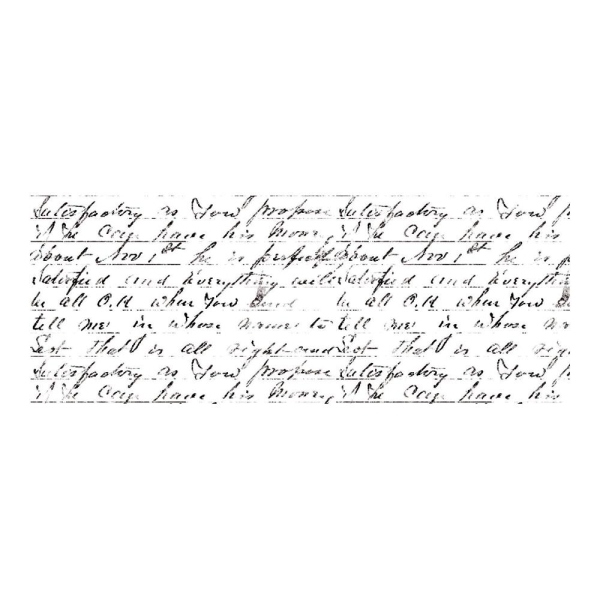 Satisfactory as You propose Satisfactory as You p
if he can have his Money, if he can have his
About Nov 1st he is perfectly About Nov 1st he is p
Satisfied and Everything will Satisfied and Everything
be all O.K when You Send be all O.K when You
tell me in whose name to tell me in whose
that is all right and that is all rig
Satisfactory as You propose Satisfactory as You p
if he can have his Money, if he can have his